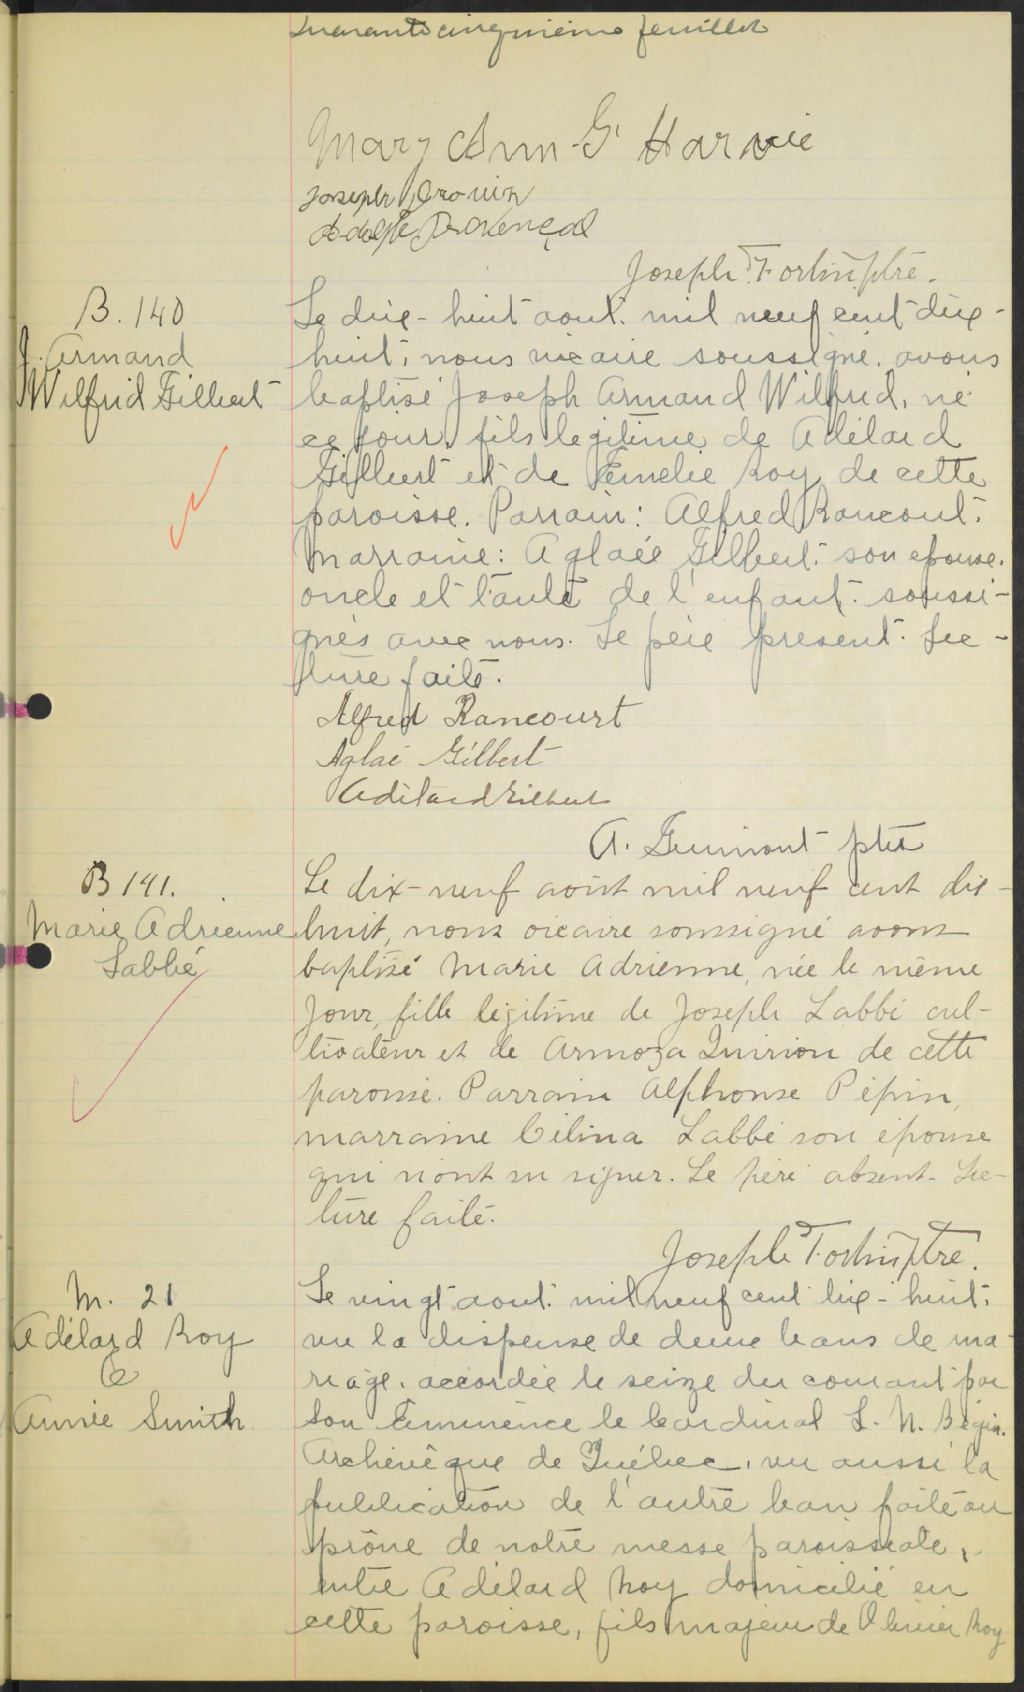 Quarante cinquième feuillet
Mary Ann G. Harvie
Joseph Drouin
Adolphe Provençal
Joseph Fortin ptre.
B. 140
J. Armand
Wilfrid Gilbert
Le dix-huit aout mil neuf cent dix-
huit, nous vicaire soussigné, avons
baptisé Joseph Armand Wilfrid, né
ce jour, fils légitime de Adélard
Gilbert et de Emelie Roy de cette
paroisse. Parrain: Alfred Rancourt.
Marraine: Aglaée Gilbert son epouse.
oncle et tante de l'enfant soussi-
gnés avec nous. Le père présent. Lec-
ture faite.
Alfred Rancourt
Aglaé Gilbert
Adélard Gilbert
A. Guimont ptre
B 141.
Marie Adrienne
Labbé
Le dix-neuf août mil neuf cent dix-
huit, nous vicaire soussigné avons
baptisé Marie Adrienne, née le même
jour, fille légitime de Joseph Labbé cul-
tivateur et de Armoza Quirion de cette
paroisse. Parrain Alphonse Pépin,
marraine Célina Labbé son épouse
qui n'ont su signer. Le père absent. Lec-
ture faite.
Joseph Fortin ptre.
M. 21
Adélard Roy
&
Annie Smith
Le vingt aout mil neuf cent dix-huit,
vu la dispense de deux bans de ma-
riage, accordée le seize du courant par
Son Eminence le Cardinal L. N. Bégin.
Archevêque de Québec, vu aussi la
publication de l'autre ban faite au
prône de notre messe paroissiale,
entre Adélard Roy domicilié en
cette paroisse, fils majeur de Olivier Roy